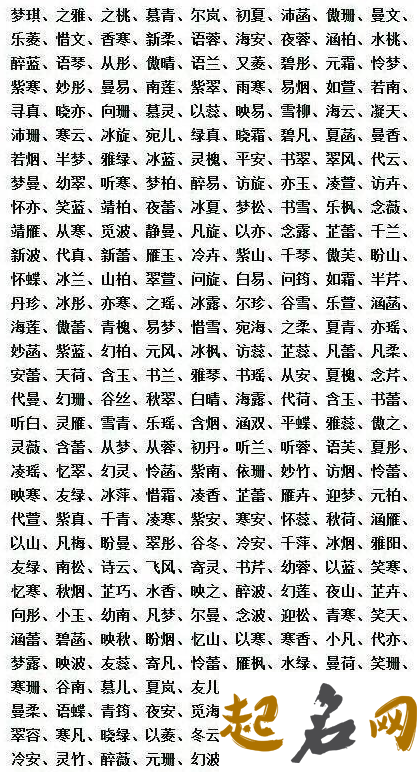 梦琪、之雅、之桃、慕青、尔岚、初夏、沛菡、傲珊、曼文、
乐菱、惜文、香寒、新柔、语蓉、海安、夜蓉、涵柏、水桃、
醉蓝、语琴、从彤、傲晴、语兰、又菱、碧彤、元霜、怜梦、
紫寒、妙彤、曼易、南莲、紫翠、雨寒、易烟、如萱、若南、
寻真、晓亦、向珊、慕灵、以蕊、映易、雪柳、海云、凝天、
沛珊、寒云、冰旋、宛儿、绿真、晓霜、碧凡、夏菡、曼香、
若烟、半梦、雅绿、冰蓝、灵槐、平安、书翠、翠风、代云、
梦曼、幼翠、听寒、梦柏、醉易、访旋、亦玉、凌萱、访卉、
怀亦、笑蓝、靖柏、夜蕾、冰夏、梦松、书雪、乐枫、念薇、
靖雁、从寒、觅波、静曼、凡旋、以亦、念露、芷蕾、千兰、
新波、代真、新蕾、雁玉、冷卉、紫山、千琴、傲芙、盼山、
怀蝶、冰兰、山柏、翠萱、问旋、白易、问筠、如霜、半芹、
丹珍、冰彤、亦寒、之瑶、冰露、尔珍、谷雪、乐萱、涵菡、
海莲、傲蕾、青槐、易梦、惜雪、宛海、之柔、夏青、亦瑶、
妙菡、紫蓝、幻柏、元风、冰枫、访蕊、芷蕊、凡蕾、凡柔、
安蕾、天荷、含玉、书兰、雅琴、书瑶、从安、夏槐、念芹、
代曼、幻珊、谷丝、秋翠、白晴、海露、代荷、含玉、书蕾、
听白、灵雁、雪青、乐瑶、含烟、涵双、平蝶、雅蕊、傲之、
灵薇、含蕾、从梦、从蓉、初丹。听兰、听蓉、语芙、夏彤、
凌瑶、忆翠、幻灵、怜菡、紫南、依珊、妙竹、访烟、怜蕾、
映寒、友绿、冰萍、惜霜、凌香、芷蕾、雁卉、迎梦、元柏、
代萱、紫真、千青、凌寒、紫安、寒安、怀蕊、秋荷、涵雁、
以山、凡梅、盼曼、翠彤、谷冬、冷安、千萍、冰烟、雅阳、
友绿、南松、诗云、飞风、寄灵、书芹、幼蓉、以蓝、笑寒、
忆寒、秋烟、芷巧、水香、映之、醉波、幻莲、夜山、芷卉、
向彤、小玉、幼南、凡梦、尔曼、念波、迎松、青寒、笑天、
涵蕾、碧菡、映秋、盼烟、忆山、以寒、寒香、小凡、代亦、
梦露、映波、友蕊、寄凡、怜蕾、雁枫、水绿、曼荷、笑珊、
寒珊、谷南、慕儿、夏岚、友儿
曼柔、语蝶、青筠、夜安、觅海
翠容、寒凡、晓绿、以菱、冬云
冷安、灵竹、醉薇、元珊、幻波
起名网